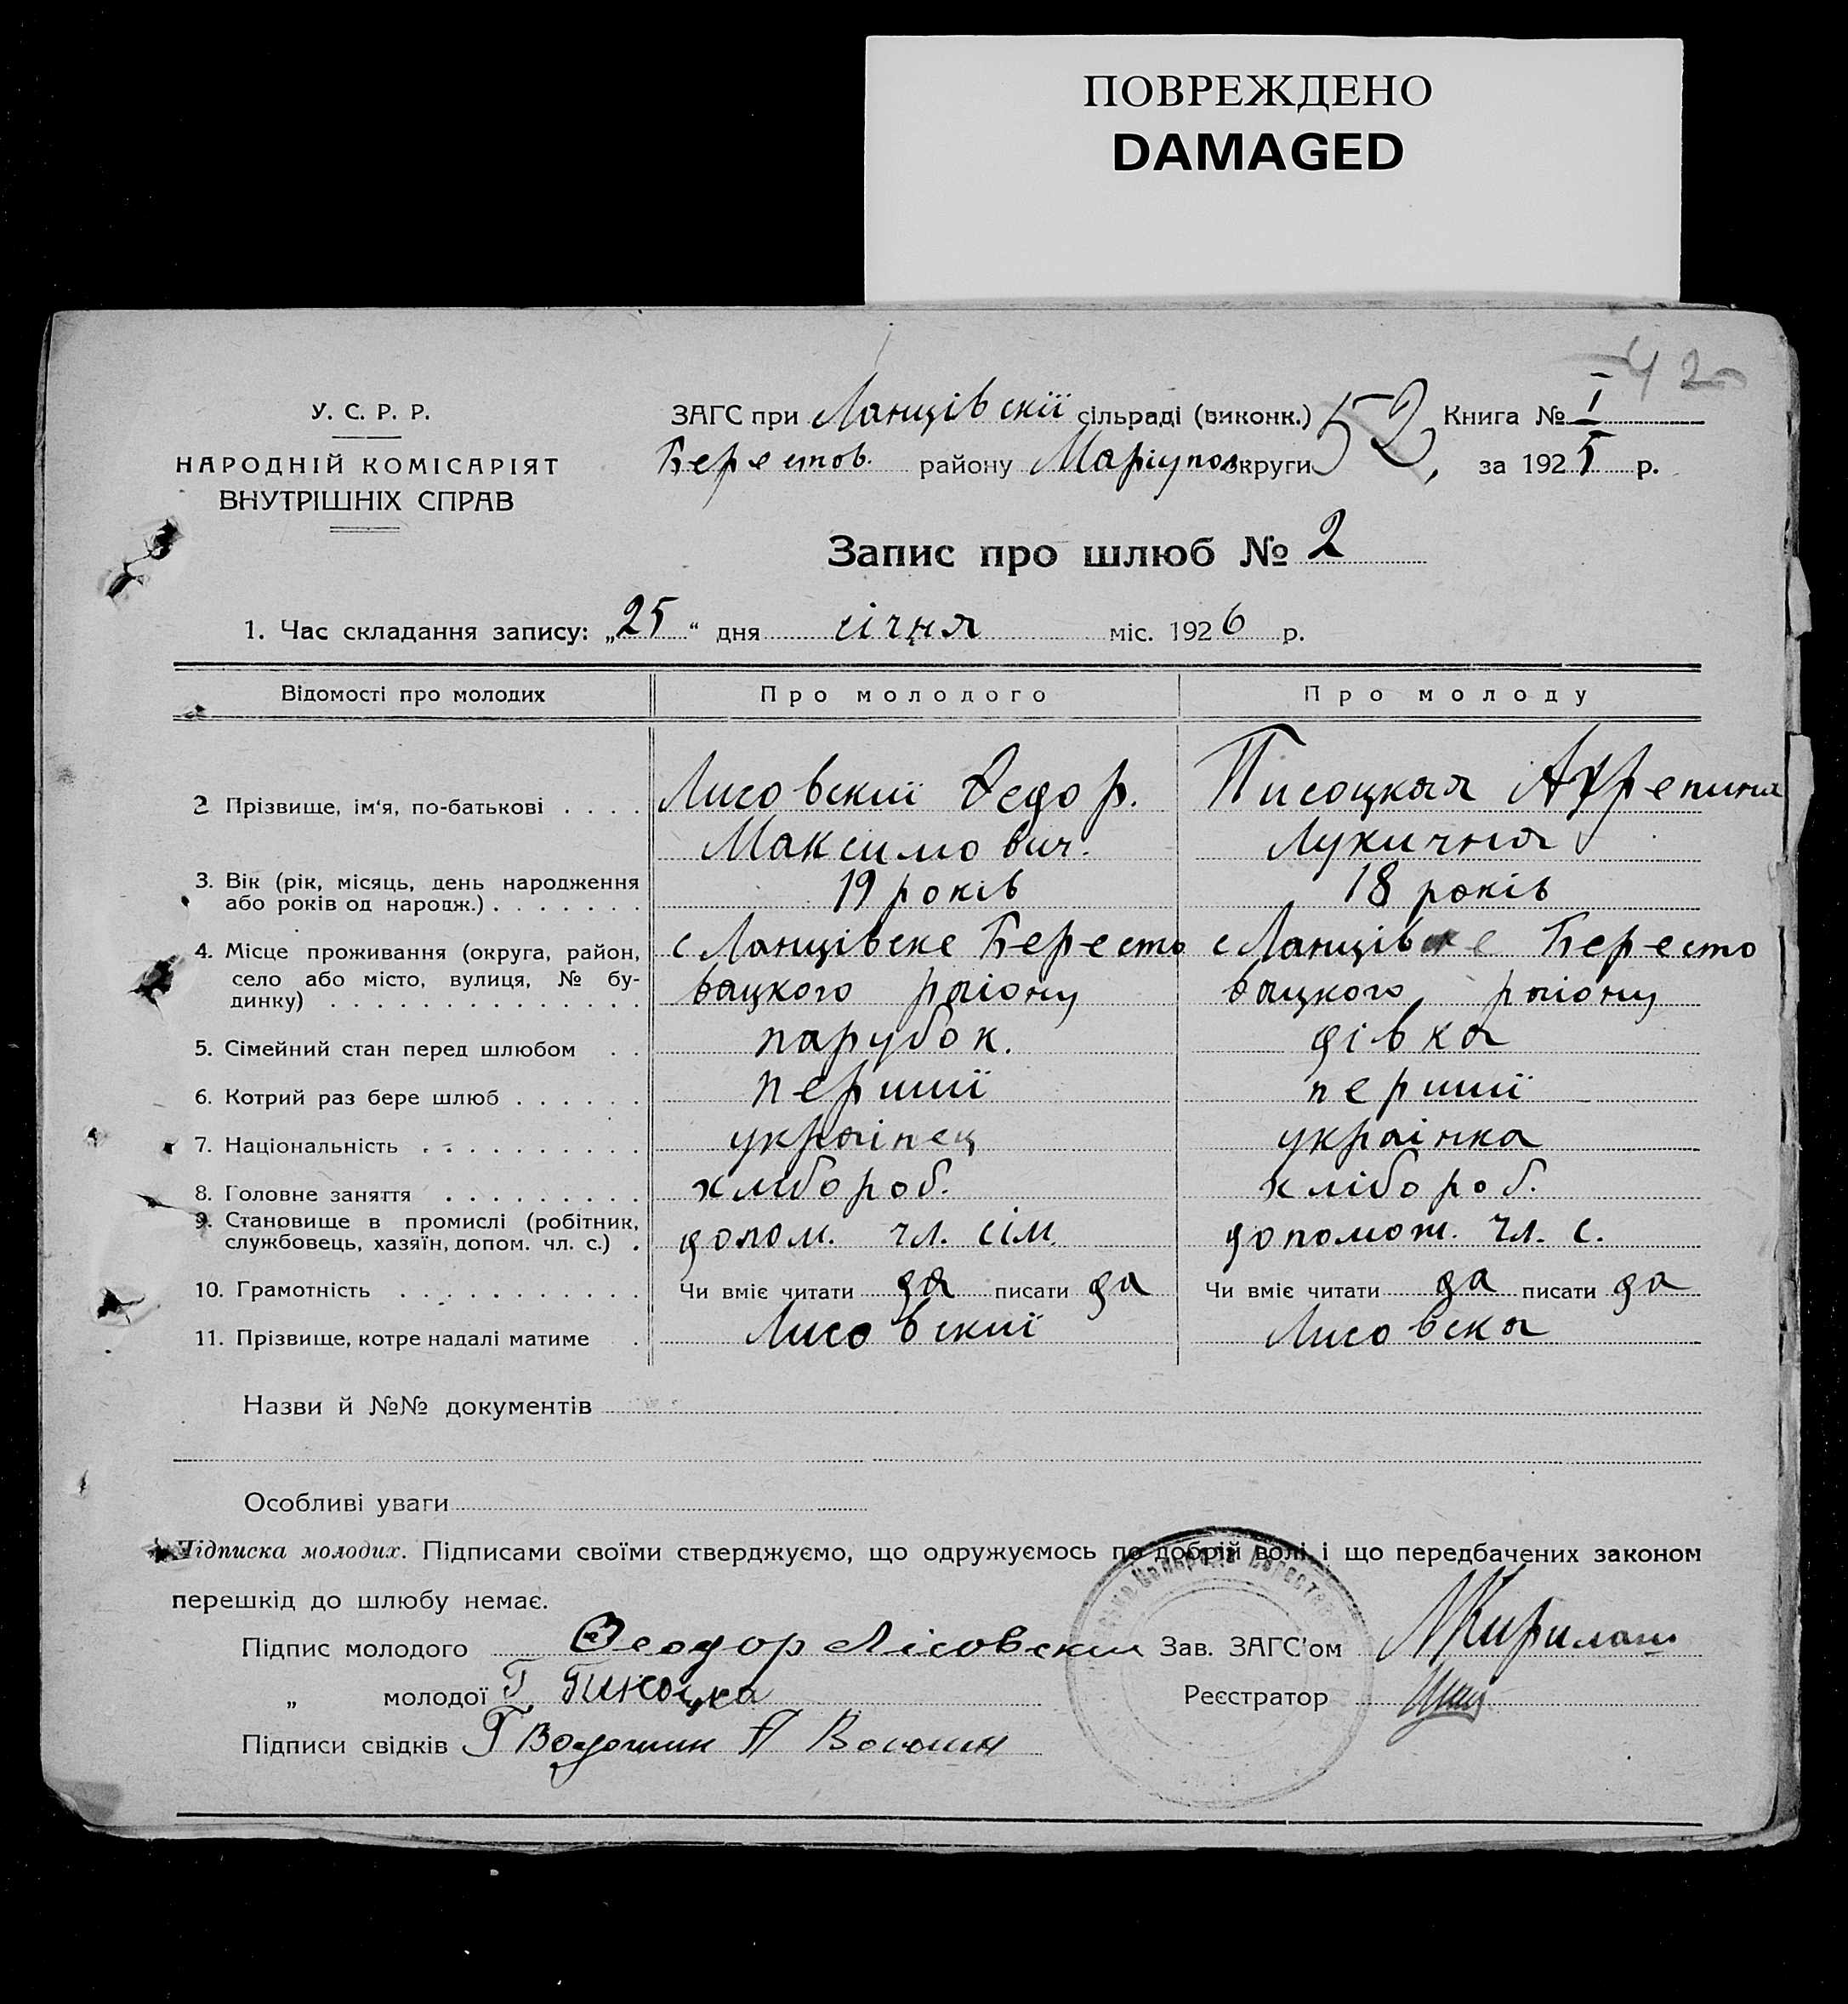 ПОВРЕЖДЕНО
DAMAGED
42
У. С. Р. Р.
НАРОДНІЙ КОМІСАРІЯТ
ВНУТРІШНІХ СПРАВ
ЗАГС при Ланцівскії сільраді (виконк.) 52, Книга № I
Берестов. району Маріупол округи за 1925 р.
Запис про шлюб № 2
1. Час складання запису: „25“ дня січня міс. 1926 р.
Відомості про молодих Про молодого Про молоду
2 Прізвище, ім‘я, по-батькові . . . . Лисовский Федор. Писоцкая
Максимович. Лукична
3. Вік (рік, місяць, день народження
або років од народж.) . . . . . . . 19 років 18 років
4. Місце проживання (округа, район, с Ланцівске Бересто с Ланцівске Бересто
село або місто, вулиця, № бу-
динку) . . . . . . . . . . . . . . вацкого раіону вацкого раіону
5. Сімейний стан перед шлюбом . . парубок. дівка
6. Котрий раз бере шлюб . . . . . . перший перший
7. Національність . . . . . . . . . . українец українка
8. Головне заняття . . . . . . . . . хлібороб. хлібороб.
9. Становище в промислі (робітник,
службовець, хазяїн, допом. чл. с.) . допом. чл. сім. допомож. чл. с.
10. Грамотність . . . . . . . . . . . Чи вміє читати да писати да Чи вміє читати да писати да
11. Прізвище, котре надалі матиме . Лисовский Лисовска
Назви й №№ документів
Особливі уваги
Підписка молодих. Підписами своїми стверджуємо, що одружуємось по добрій волі і що передбачених законом
перешкід до шлюбу немає.
Підпис молодого Феодор Лісовский Зав. ЗАГС'ом
„ молодої Г Реєстратор
Підписи свідків Г П